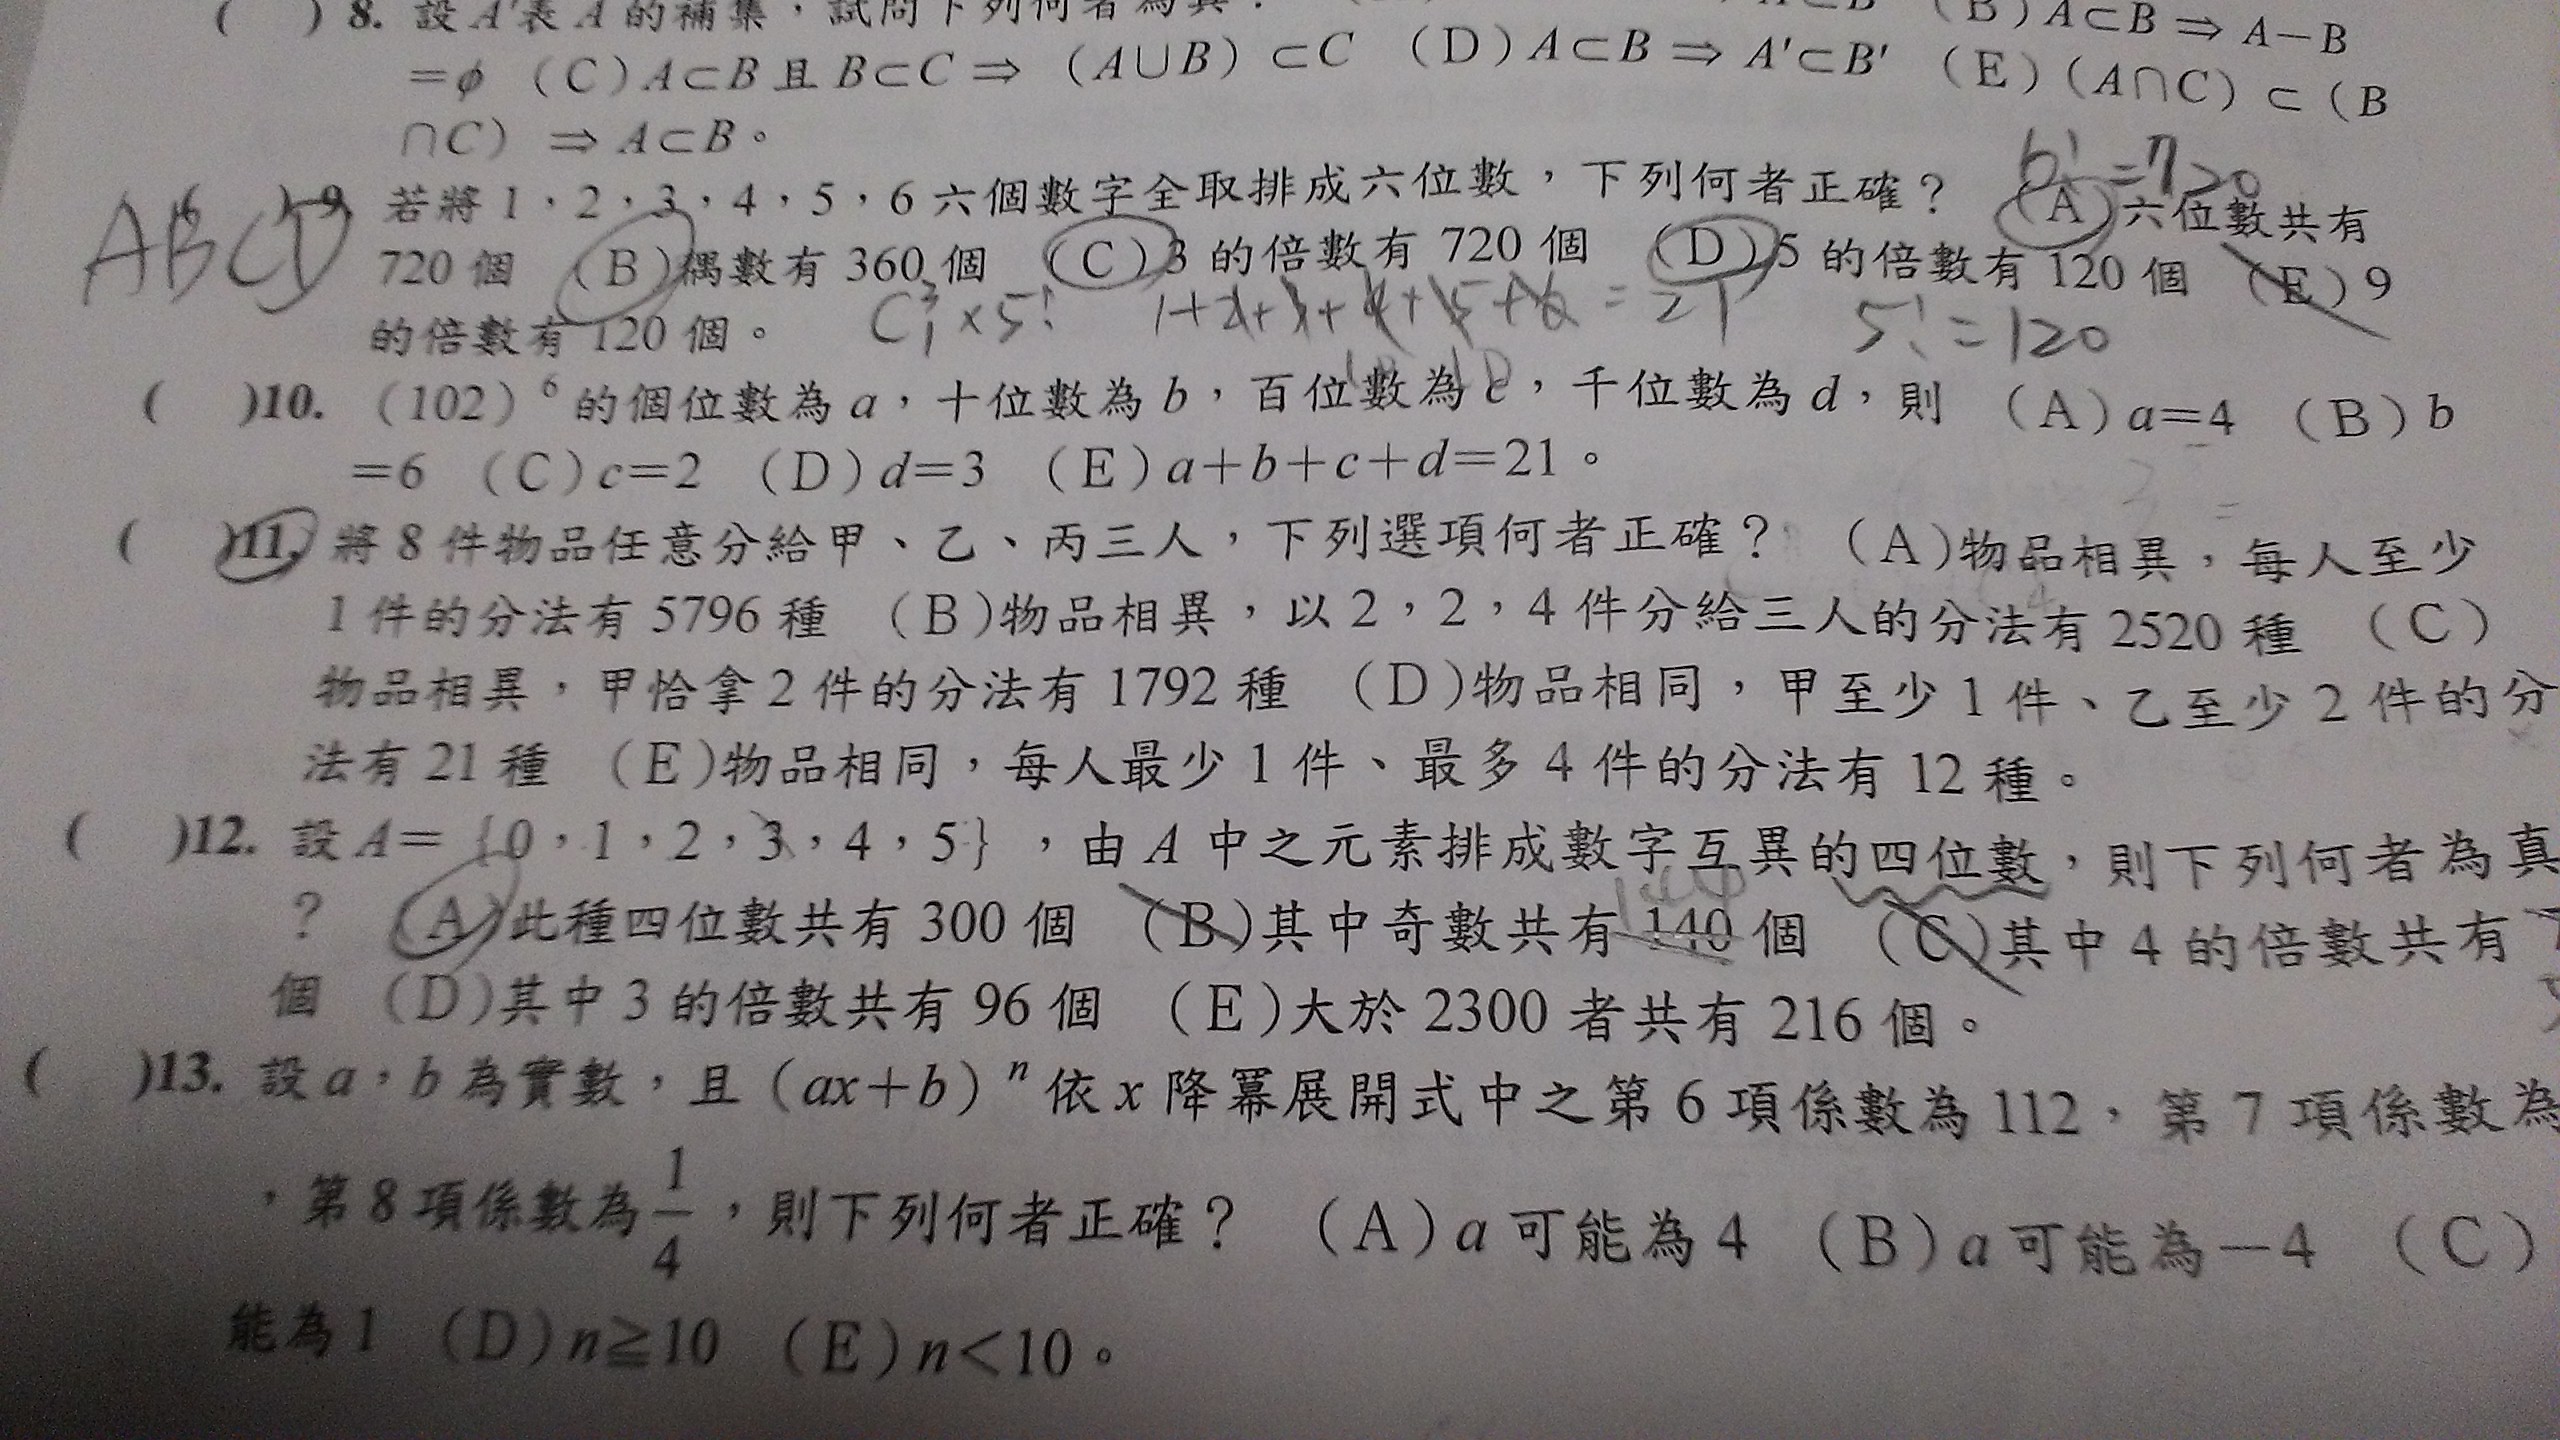 ( )8. 設A'表A的補集，試問下列何者為真？ A⊂B (B)A⊂B⇒A−B
=ϕ (C)A⊂B且B⊂C⇒(A∪B)⊂C (D)A⊂B⇒A'⊂B' (E)(A∩C)⊂(B
∩C)⇒A⊂B。
6!=720
ABCD
( )9. 若將1，2，3，4，5，6六個數字全取排成六位數，下列何者正確？ (A)六位數共有
720個 (B)偶數有360個 (C)3的倍數有720個 (D)5的倍數有120個 (E)9
的倍數有120個。
C³₁×5! 1+2+3+4+5+6=21 5!=120
( )10. (102)⁶的個位數為a，十位數為b，百位數為c，千位數為d，則 (A)a=4 (B)b
=6 (C)c=2 (D)d=3 (E)a+b+c+d=21。
( )11. 將8件物品任意分給甲、乙、丙三人，下列選項何者正確？ (A)物品相異，每人至少
1件的分法有5796種 (B)物品相異，以2，2，4件分給三人的分法有2520種 (C)
物品相異，甲恰拿2件的分法有1792種 (D)物品相同，甲至少1件、乙至少2件的分
法有21種 (E)物品相同，每人最少1件、最多4件的分法有12種。
( )12. 設A={0，1，2，3，4，5}，由A中之元素排成數字互異的四位數，則下列何者為真
？ (A)此種四位數共有300個 (B)其中奇數共有140個 (C)其中4的倍數共有
個 (D)其中3的倍數共有96個 (E)大於2300者共有216個。
( )13. 設a，b為實數，且(ax+b)ⁿ依x降冪展開式中之第6項係數為112，第7項係數為
，第8項係數為1/4，則下列何者正確？ (A)a可能為4 (B)a可能為−4 (C)
能為1 (D)n≧10 (E)n<10。